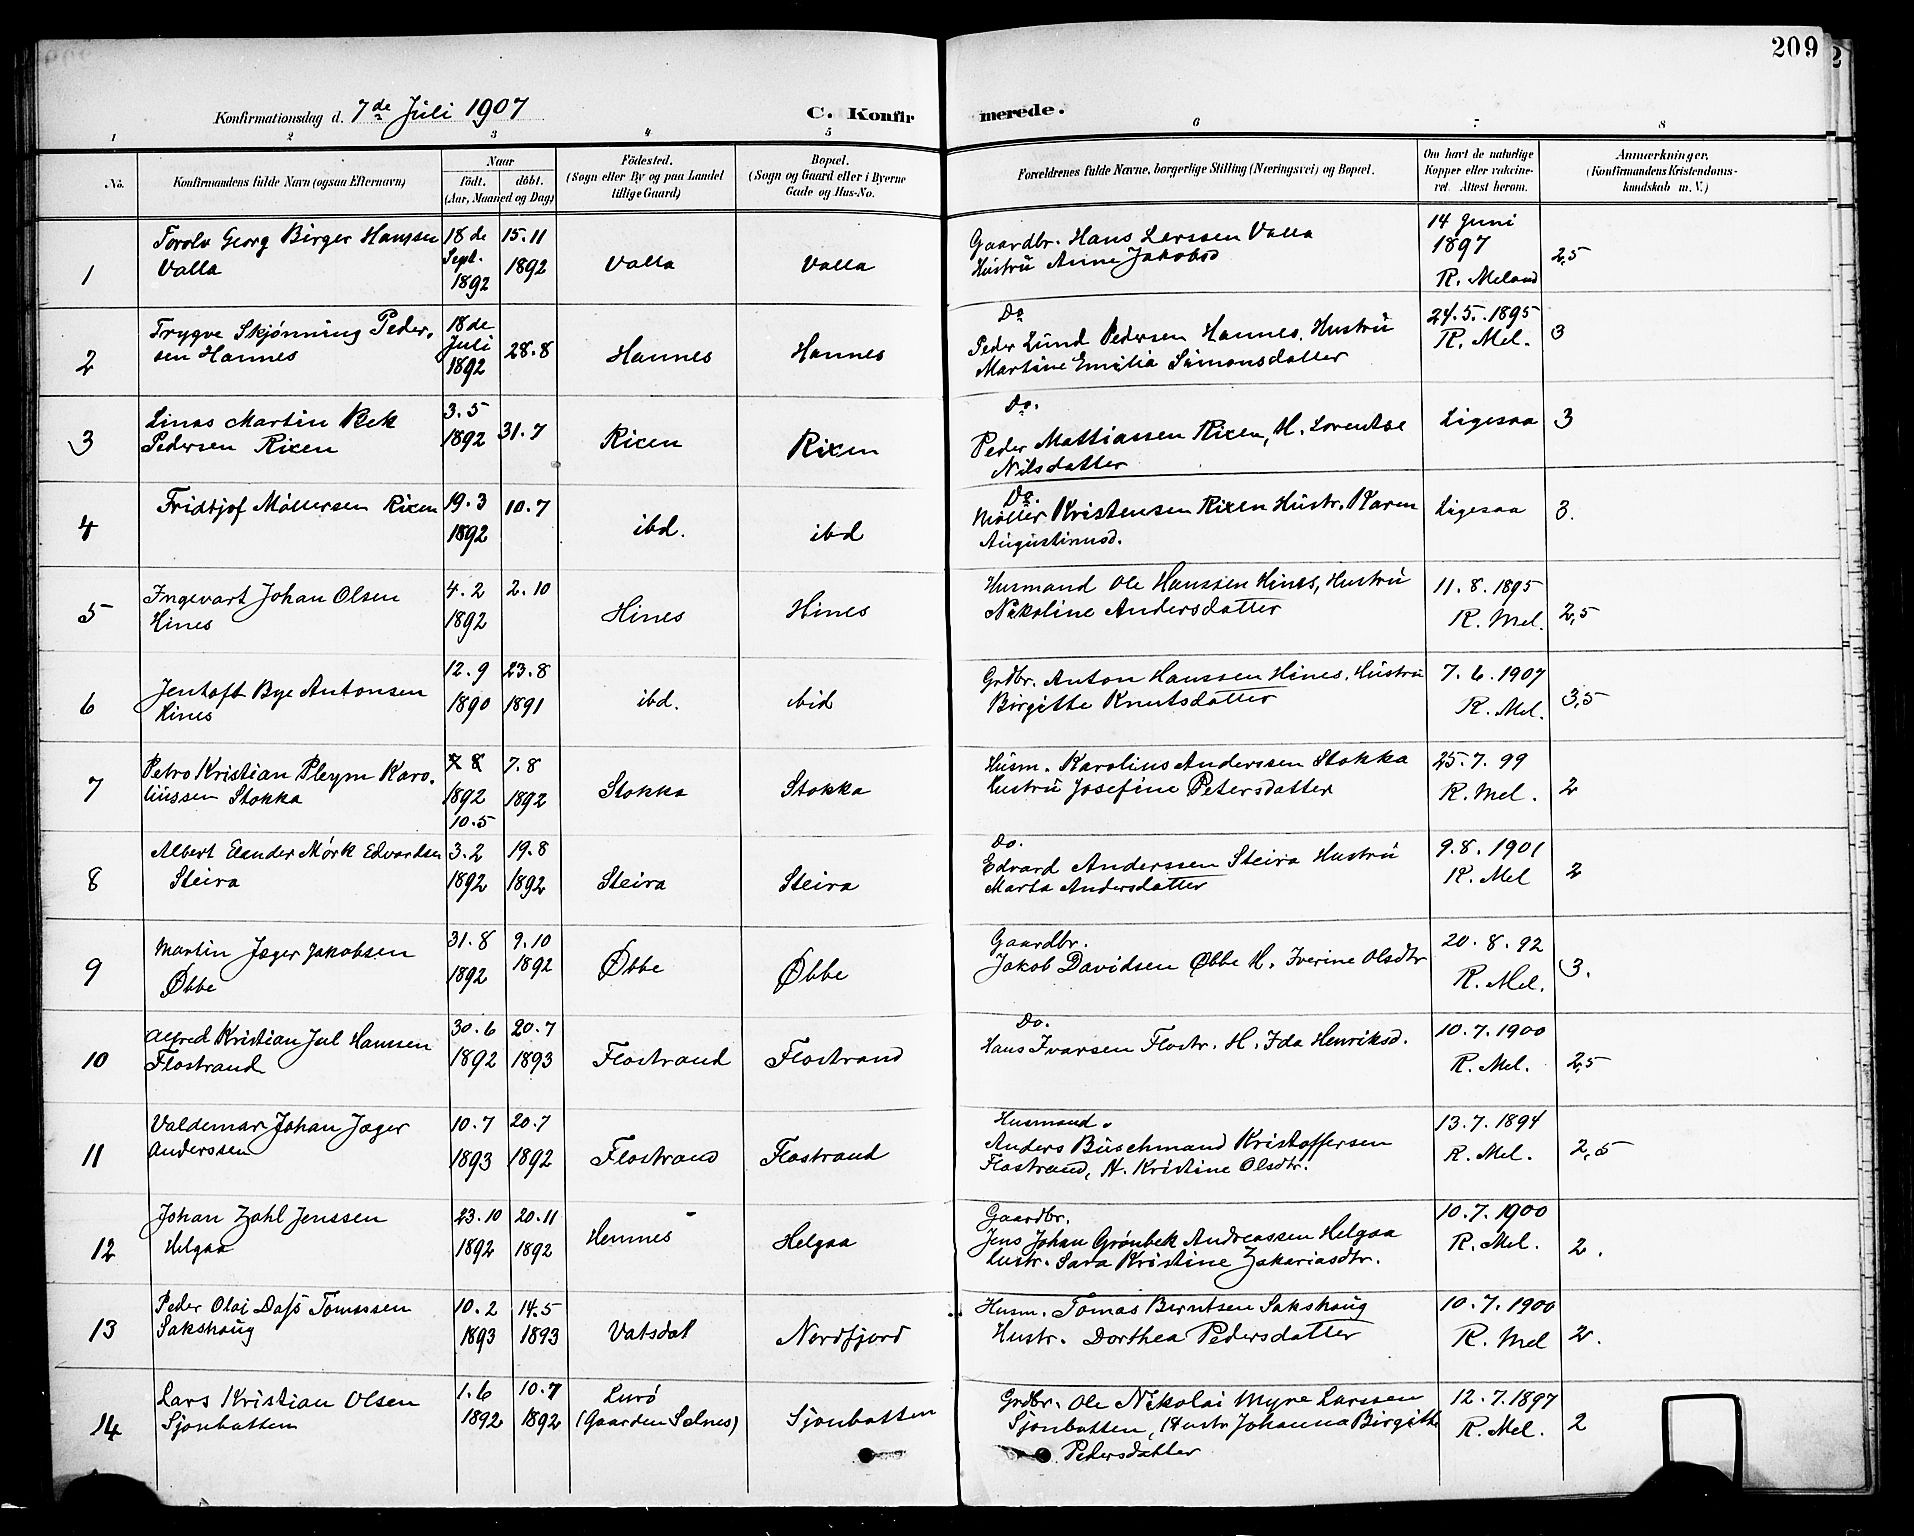 209
Konfirmationsdag d. 7de Juli 1907
C. Konfirmerede.
1 2 3 4 5 6 7 8
No.
Konfirmandens fulde Navn (ogsaa Efternavn)
Naar
födt. döbt.
(Aar, Maaned og Dag)
Födested.
(Sogn eller By og paa Landet
tillige Gaard)
Bopæl.
(Sogn og Gaard eller i Byerne
Gade og Hus-No.
Forældrenes fulde Navne, borgerlige Stilling (Næringsvei) og Bopæl.
Om havt de naturlige
Kopper eller vaccine-
ret. Attest herom.
Anmærkninger,
(Konfirmandens Kristendoms-
kundskab m. V.)
1 Torolv Georg Birger Hanssen
Valla
18 de Sept. 1892
15.11 1892
Valla
Valla
Gaardbr. Hans Larssen Valla
Hustru Anne Jakobsd
14 Juni
1897
R. Meland
2,5
2 Trygve Skjønning Peder-
sen Hannes
18 de Juli 1892
28.8
Hannes
Hannes
Do
Peder Lund Pedersen Hannes, Hustru
Martine Emilia Simonsdatter
24.5.1895
R. Mel.
3
3 Linas Martin Rek
Pedersen Rixen
3.5 1892
31.7
Rixen
Rixen
Do.
Peder Mattiassen Rixen, H. Lorentse
Nilsdatter
Ligesaa
3
4 Fridtjof Møllersen Rixen
19.3 1892
10.7
ibd.
ibd
Do.
Møller Kristensen Rixen Hustr. Karen
Augustinusd.
Ligesaa
3.
5 Ingevart Johan Olsen
Hines
4.2 1892
2.10
Hines
Hines
Husmand Ole Hanssen Hines, Hustru
Nikoline Andersdatter
11.8.1895
R. Mel.
2,5
6 Jentoft Bye Antonsen
Hines
12.9 1890
23.8 1891
ibd.
ibid
Grdbr. Anton Hanssen Hines, Hustru
Birgitte Knutsdatter
7.6.1907
R. Mel.
3,5
7 Petro Kristian Pleym Karo-
liussen Stokka
7 8 1892 10.5
7.8 1892
Stokka
Stokka
Husm. Karolius Anderssen Stokka
Hustru Josefine Petersdatter
25.7.99
R. Mel.
2
8 Albert Elander Mørk Edvardsen
Steira
3.2 1892
19.8 1892
Steira
Steira
Do.
Edvard Anderssen Steira Hustru
Marta Andersdatter
9.8.1901
R. Mel
2
9 Martin Jæger Jakobsen
Øbbe
31.8 1892
9.10 1892
Øbbe
Øbbe
Gaardbr.
Jakob Davidsen Øbbe H. Iverine Olsdtr
20.8.92
R. Mel.
3.
10 Alfred Kristian Jul Hanssen
Flostrand
30.6 1892
20.7 1893
Flostrand
Flostrand
Do.
Hans Ivarsen Flostr. H. Ida Henriksd.
10.7.1900
R. Mel.
2,5
11 Valdemar Johan Jæger
Anderssen
10.7 1893
20.7 1892
Flostrand
Flostrand
Husmand.
Anders Buschmand Kristoffersen
Flostrand, H. Kristine Olsdtr.
13.7.1894
R. Mel.
2,5
12 Johan Zahl Jenssen
Helgaa
23.10 1892
20.11 1892
Hemnes
Helgaa
Gaardbr.
Jens Johan Grønbek Andreassen Helgaa
Hustr. Sara Kristine Zakariasdtr.
10.7.1900
R. Mel.
2.
13 Peder Olai Dass Tomassen
Sakshaug
10.2 1893
14.5 1893
Vatsdal
Nordfjord
Husm. Tomas Berntsen Sakshaug
Hustr. Dorthea Pedersdatter
10.7.1900
R. Mel
2.
14 Lars Kristian Olsen
Sjonbotten
1.6 1892
10.7 1892
Lurö
(Gaarden Selnes)
Sjonbotten
Grdbr. Ole Nikolai Myre Larssen
Sjonbotten, Hustr Johanna Birgitte
Pedersdatter
12.7.1897
R. Mel.
2